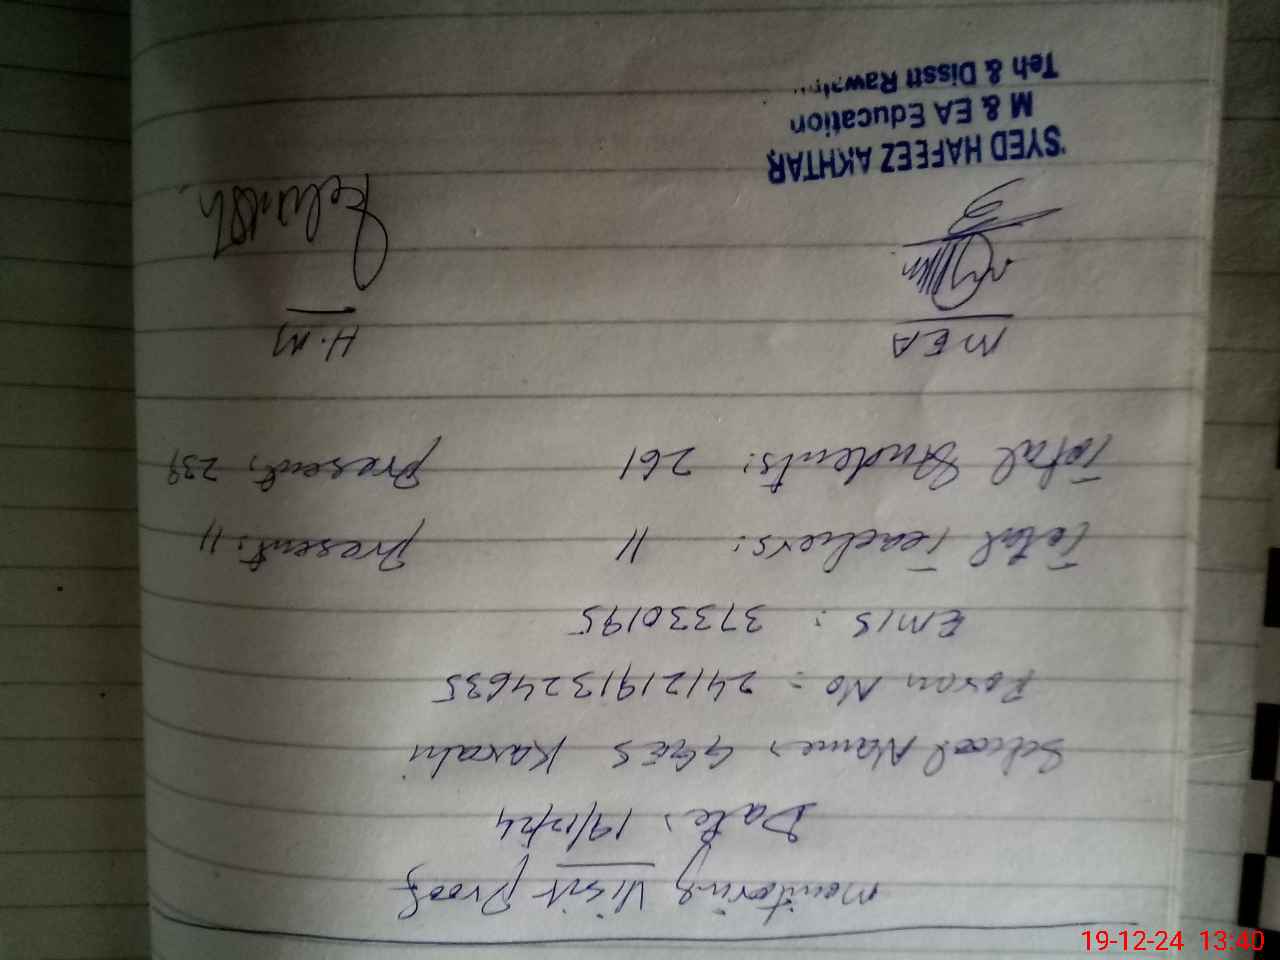 Monitoring Visit Proof
Date: 19/12/24
School Name: GGES Karahi
Foram No: 2412191324635
EMIS: 37330195
Total Teachers: 11 Present: 11
Total Students: 261 Present: 239
MEA H.M
SYED HAFEEZ AKHTAR
M & EA Education
Teh & Disstt
19-12-24 13:40